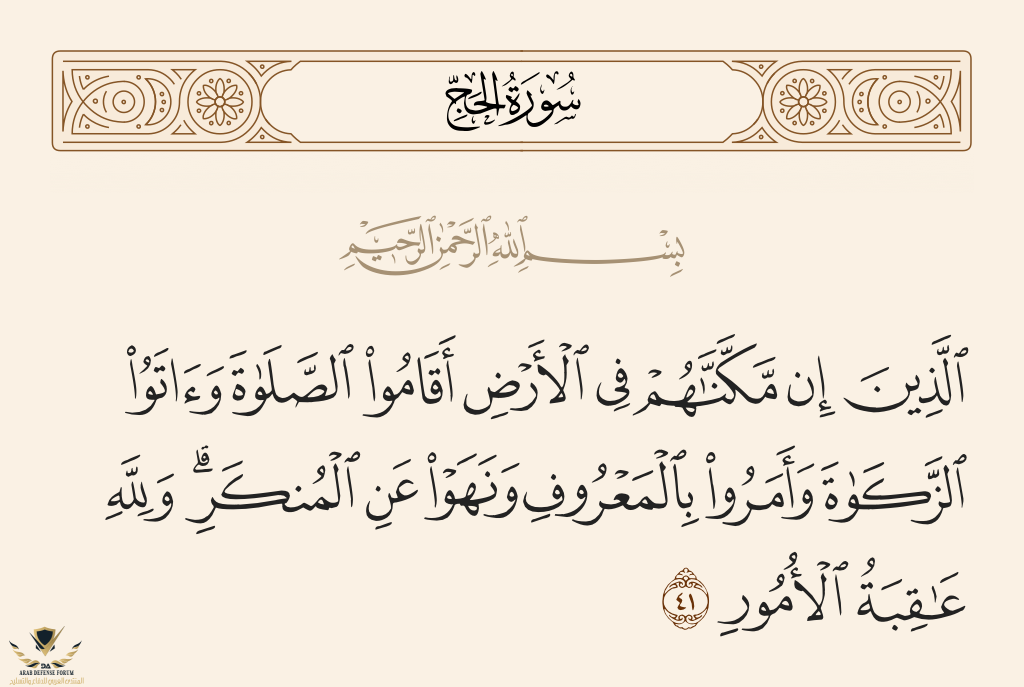 سُورَةُ الحَجِّ
بِسْمِ ٱللَّهِ ٱلرَّحْمَٰنِ ٱلرَّحِيمِ
ٱلَّذِينَ إِن مَّكَّنَّٰهُمْ فِى ٱلْأَرْضِ أَقَامُوا۟ ٱلصَّلَوٰةَ وَءَاتَوُا۟
ٱلزَّكَوٰةَ وَأَمَرُوا۟ بِٱلْمَعْرُوفِ وَنَهَوْا۟ عَنِ ٱلْمُنكَرِ ۗ وَلِلَّهِ
عَٰقِبَةُ ٱلْأُمُورِ ٤١
DA
ARAB DEFENSE FORUM
المنتدى العربي للدفاع والتسليح